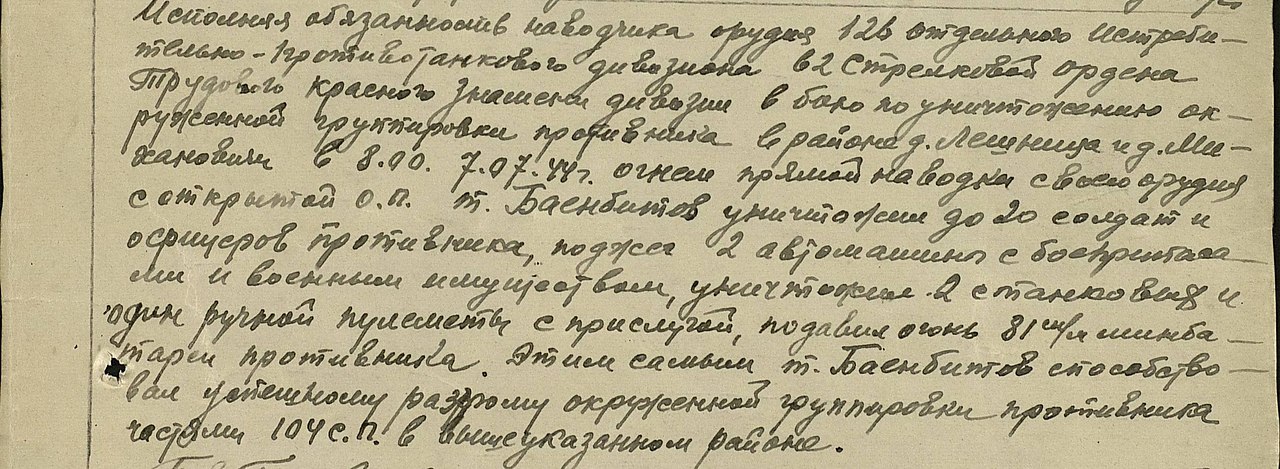 Исполняя обязанность наводчика орудия 126 отдельного Истреби-
тельно-Противотанкового дивизиона в 2 Стрелковой ордена
Трудового красного знамени дивизии в бою по уничтожению ок-
руженной группировки противника в районе д. Лешница и д. Ми-
хановичи в 8.00. 7.07.44г. огнем прямой наводки своего орудия
с открытой о.п. т. Баенбитов уничтожил до 20 солдат и
офицеров противника, поджег 2 автомашины с боеприпаса-
ми и военным имуществом, уничтожил 2 станковых и
один ручной пулеметы с прислугой, подавил огонь 81 м/м минба-
тареи противника. Этим самым т. Баенбитов способство-
вал успешному разгрому окруженной группировки противника
частями 104 с.п. в вышеуказанном районе.